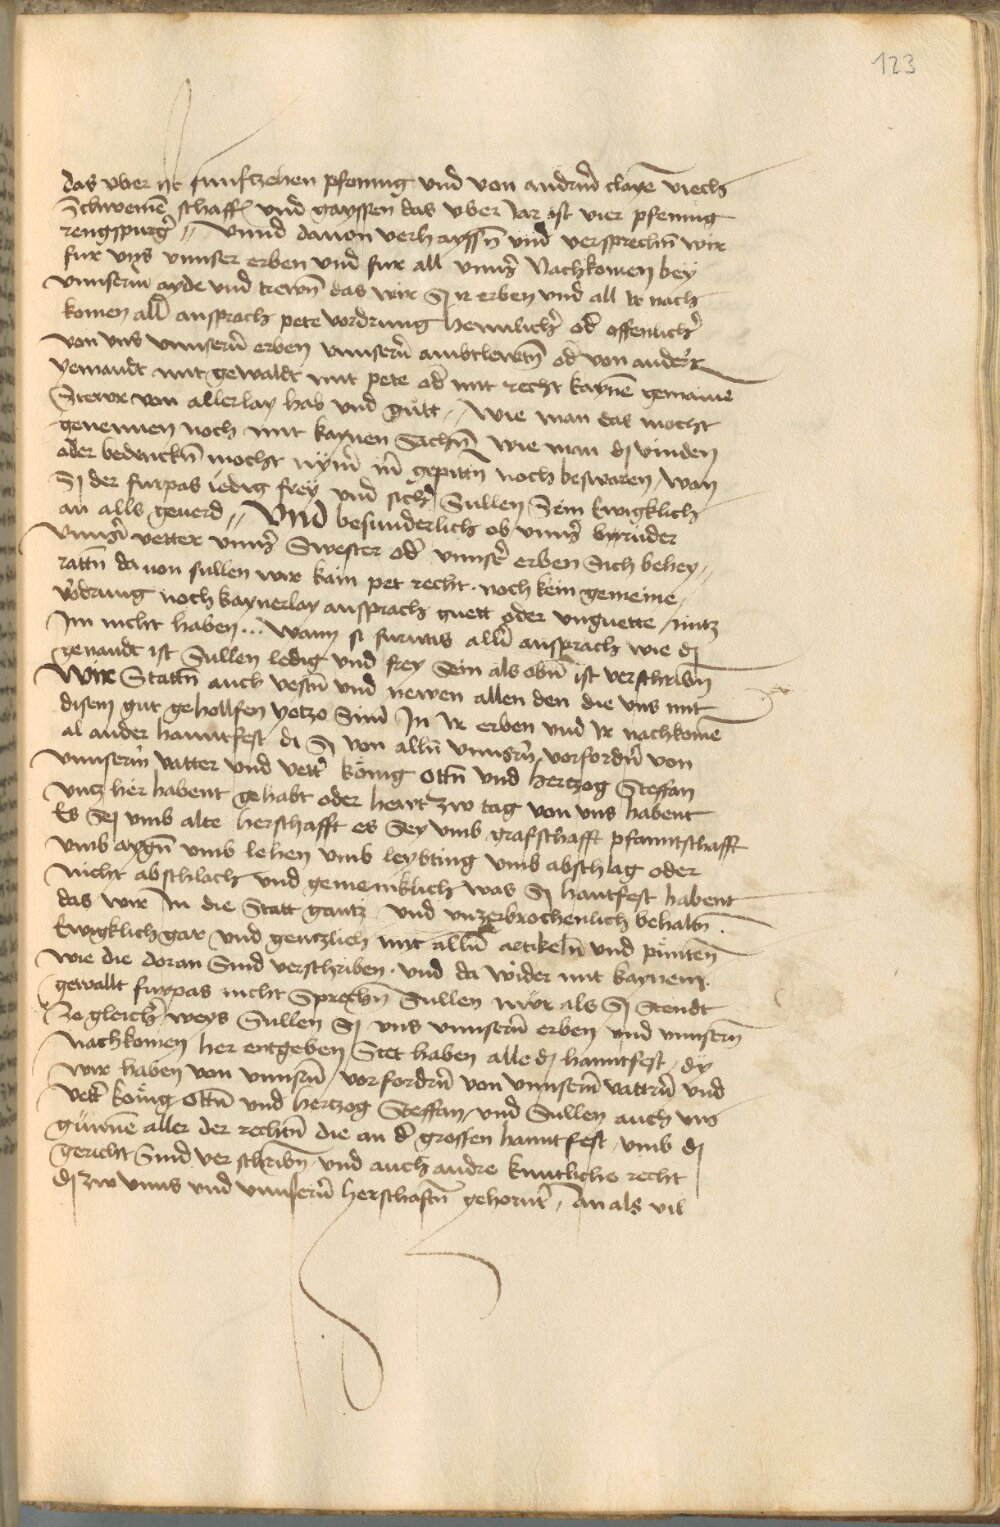 123
das vber Jar funfftzehen pfening vnd von andrm̄ claynē viech
Schweinē schaffn̄ vnd gayssen das vber Jar ist vier pfening
rengspurgr̄ // Vnnd dauon verhayssn̄ vnd versprechn̄ wir
fur vns vnnser erben vnd fur all vnnsr̄ Nachkomen bey
vnnserm̄ ayde vnd trewn̄ das wir Sy Ir erben vnd all Ir nach
komen allr̄ ansprach pete vordrung heimlichr̄ odr̄ offenlichr̄
von vns vnnserm̄ erben vnnserm̄ ambtlewtn̄ odr̄ von anders
yemandt mit gewaldt mit pete odr̄ mit recht kaynē gemaine
Stewr von allerlay hab vnd gutt / wie man das mocht
genennen noch mit kaynen Sachn̄ wie man dj vinden
oder bedenckn̄ mocht nÿmr̄ m̄ gepittn̄ noch beswaren / wan
Sj der furpas ledig frey vnd sichr̄ Sullen Sein Ewigklich
an alls geuerd // Vnd besunderlich ob vnnsr̄ bruder
vnnsr̄ vetter vnnsr̄ Swester odr̄ vnnsr̄ erben Sich behey //
rattn̄ da von sullen wir kain pet recht . noch kein gemeine /
vodrung noch kaynerlay ansprach guett oder vnguette / nutz
Im nicht haben ... wann si furwas allr̄ ansprach wie dj
genandt ist Sullen ledig vnd frey Sein als obn̄ ist verschribn̄
Wir Stattn̄ auch vestn̄ vnd newen allen den die vns mit
disem gut geholffen yetzo Sind In Ir erben vnd Ir nachkomē
al ander hanntfest di Sj von alln̄ vnnsrn̄ vorfordrn̄ von
vnnserm̄ vatter vnd vettr̄ könig ottn̄ vnd hertzog Steffan
vntz her habent gehabt oder hewt zw tag von vns habent
Es Sej vmb alte herschafft es Sey vmb grafschafft pfanntschafft
vmb aygn̄ vmb lehen vmb leybting vmb abschlag oder
nicht abschlach vnd gemeinklich was Sj hantfest habent
das wir In die Statt gantz vnd vnzerbrochenlich behaltn̄ .
Ewigklich gar vnd gentzlich mit alln̄ artikeln̄ vnd puntten̄
wie die doran Sind verschriben . vnd da wider mit kaynem
gewallt furpas nicht Sprechn̄ Sullen nwr als Sj Stendt
Ze gleichr̄ weys Sullen Sj vns vnnserm̄ erben vnd vnnsern̄
Nachkomen her entgeben Stet haben alle dj hanntfest / dy
wir haben von vnnsrn̄ vorfordrn̄ von vnnserm̄ vattrn̄ vnd
vettr̄ könig ottn̄ vnd hertzog Steffan / vnd Sullen auch vns
günnē aller der rechtn̄ die an dr̄ grossen hanntfest vmb dj
gericht Sind verschribn̄ vnd auch andre kuntliche recht
dj zw vnns vnd vnnserm̄ herschaftn̄ gehornt / An als vil